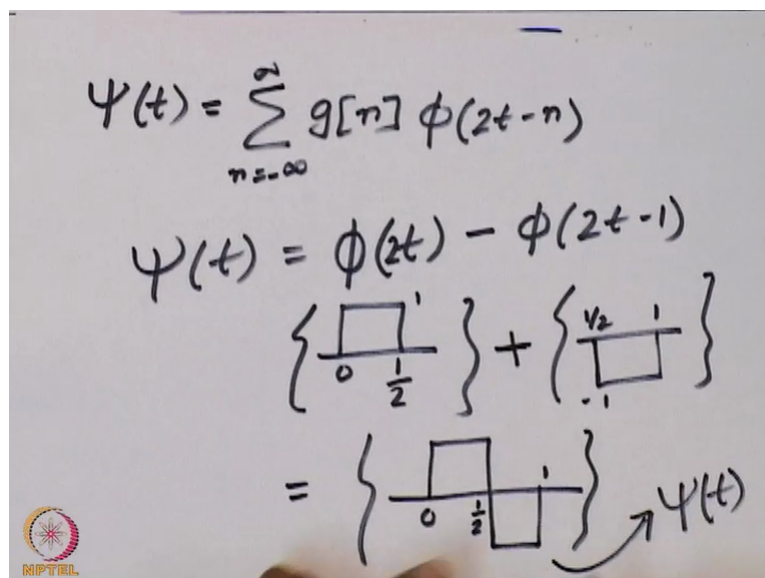 Ψ(t) = ∞ ∑ n=-∞ g[n] ϕ(2t-n)
Ψ(t) = ϕ(2t) - ϕ(2t-1)
{ 0 1/2 1 } + { 1/2 1 -1 }
= { 0 1/2 1 } Ψ(t)
NPTEL